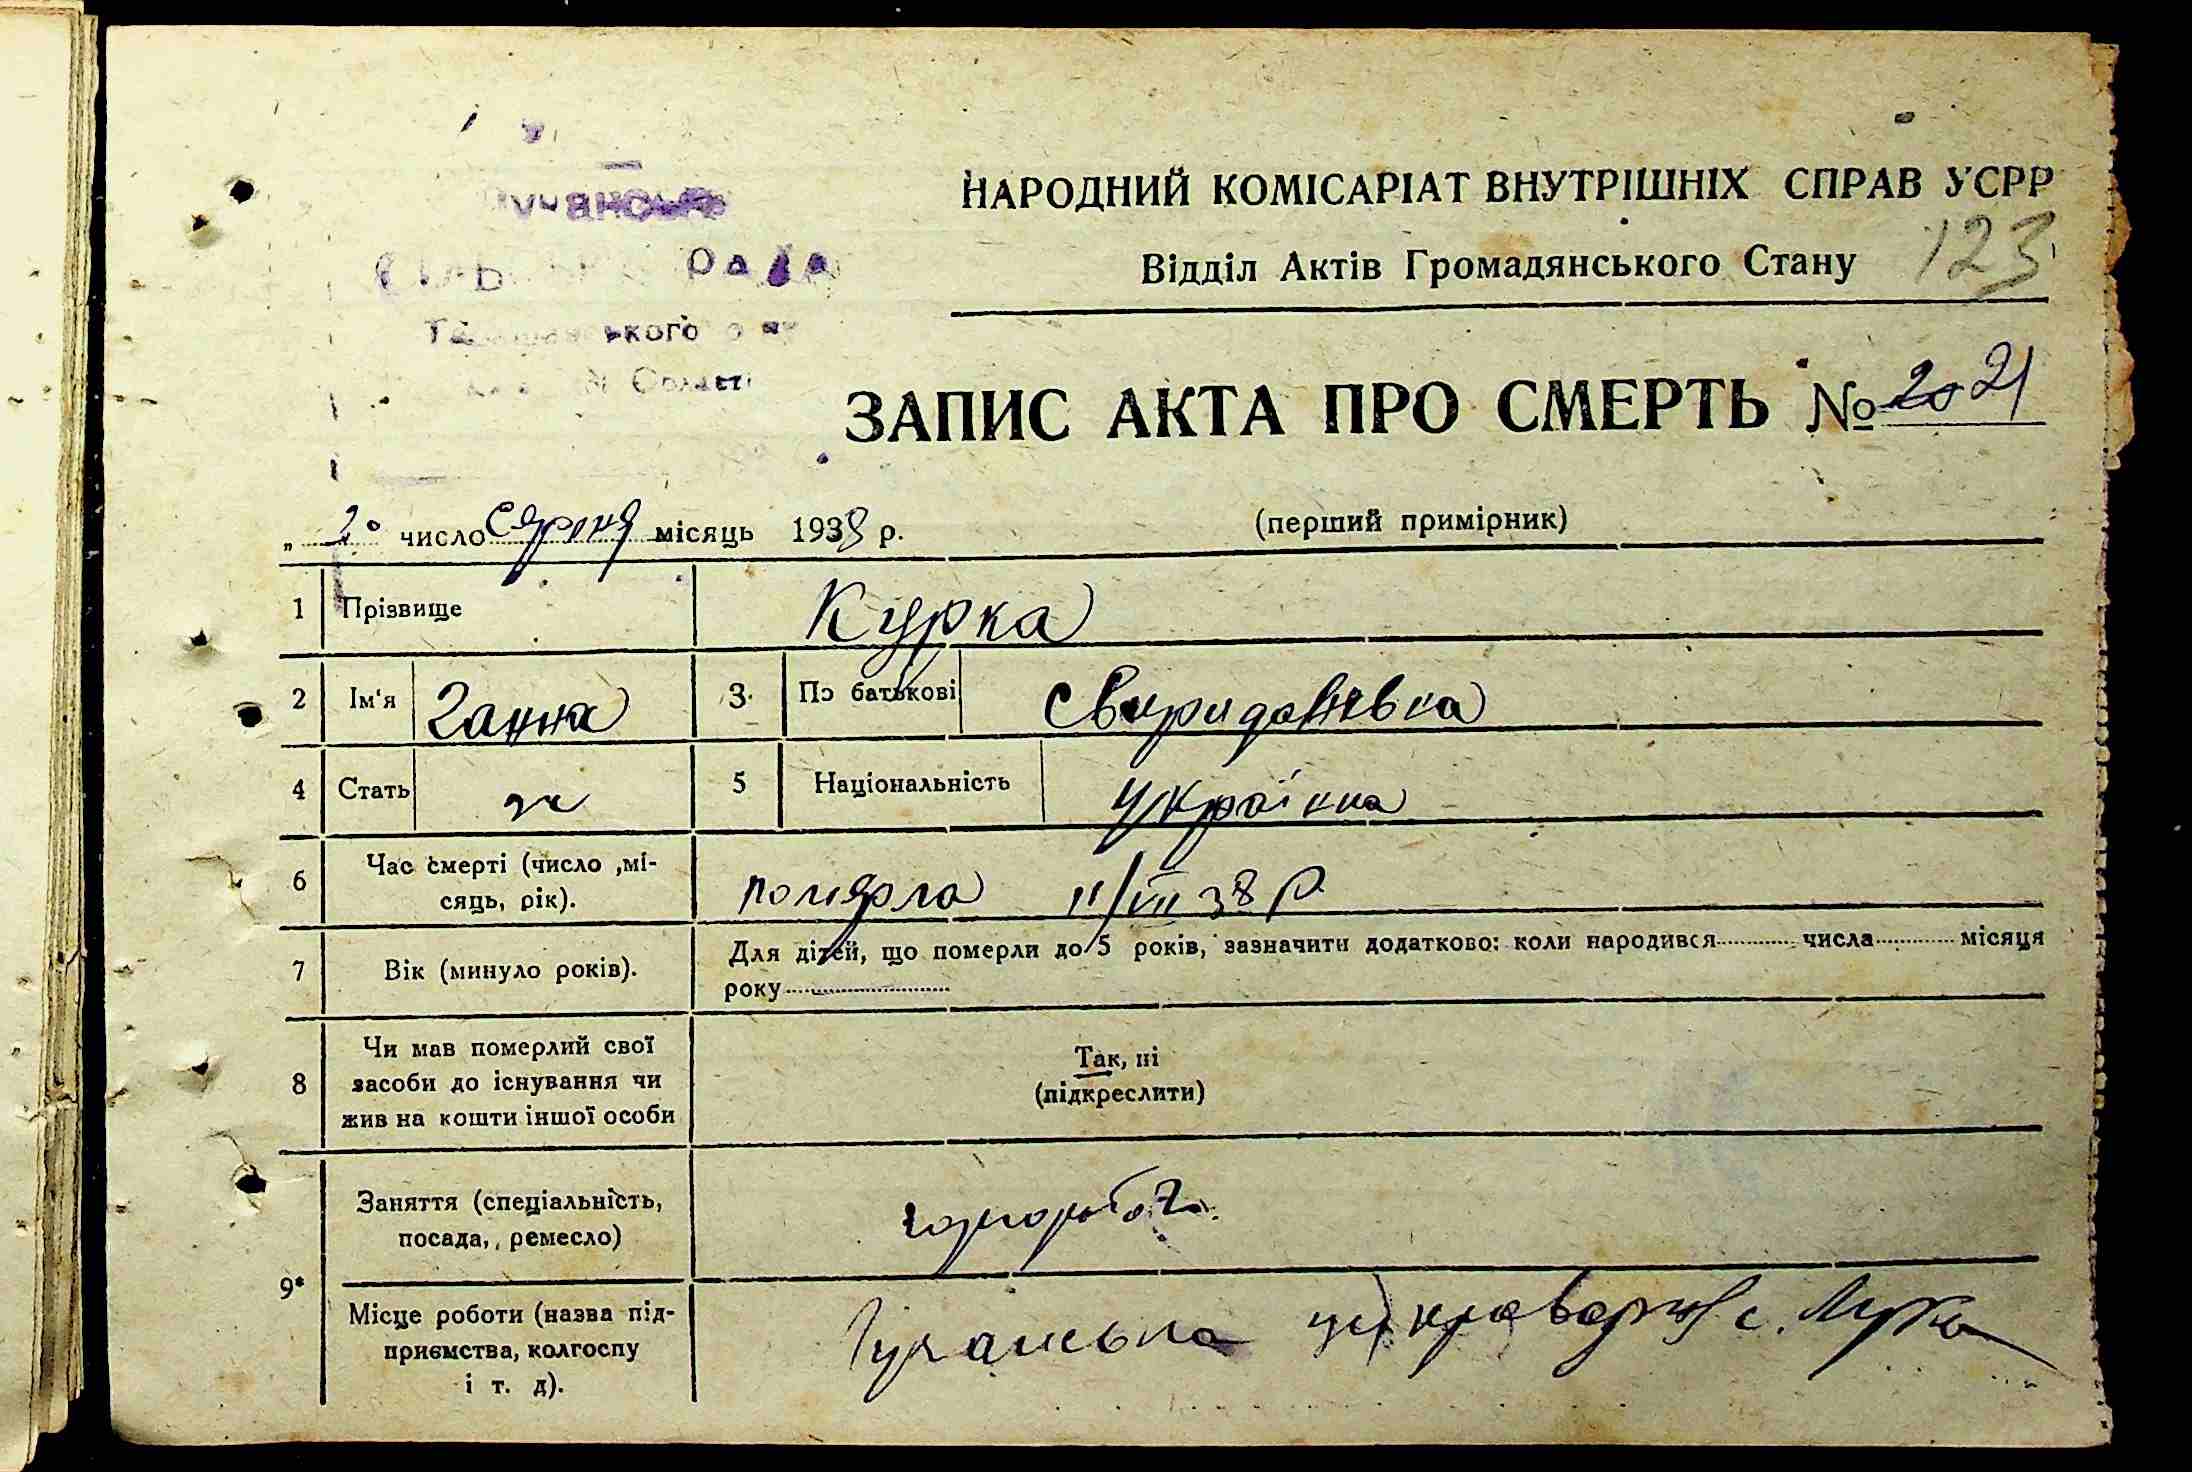 рада
НАРОДНИЙ КОМІСАРІАТ ВНУТРІШНІХ СПРАВ УСРР
Відділ Актів Громадянського Стану
123
ЗАПИС АКТА ПРО СМЕРТЬ № 20 21
„ 20 число серпня місяць 1938 р.
(перший примірник)
1 Прізвище Курка
2 Ім'я Ганна 3. По батькові Свиридонівка
4 Стать ж 5 Національність українка
6 Час смерті (число ,мі-
сяць, рік).
помярла 11/VIII 38 р.
7 Вік (минуло років).
Для дітей, що померли до 5 років, зазначити додатково: коли народився числа місяця
року
8 Чи мав померлий свої
засоби до існування чи
жив на кошти іншої особи
Так, ні
(підкреслити)
9*
Заняття (спеціальність,
посада, ремесло)
чорнороб
Місце роботи (назва під-
приємства, колгоспу
і т. д).
Лучанська с. Лука